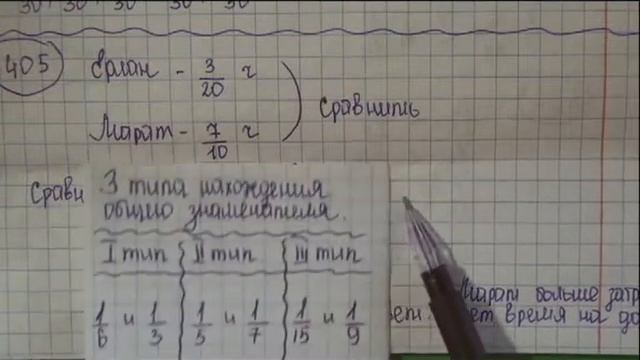 30 30 30 30 30
405 Ерлан - 3/20 ч
Марат - 7/10 ч
сравнить
Срави
3 типа нахождения
общго знаменателя.
I тип II тип III тип
1/6 и 1/3 1/5 и 1/7 1/15 и 1/9
Марат больше затр
вет: ет время на до